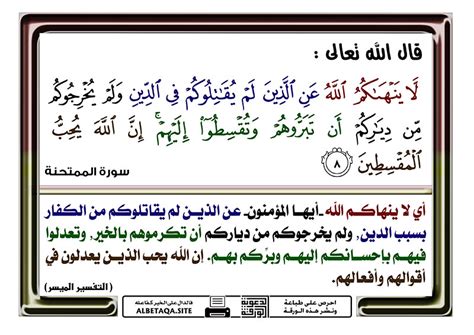 قال الله تعالى :
لَّا يَنْهَىٰكُمُ ٱللَّهُ عَنِ ٱلَّذِينَ لَمْ يُقَـٰتِلُوكُمْ فِى ٱلدِّينِ وَلَمْ يُخْرِجُوكُم
مِّن دِيَـٰرِكُمْ أَن تَبَرُّوهُمْ وَتُقْسِطُوٓا۟ إِلَيْهِمْ ۚ إِنَّ ٱللَّهَ يُحِبُّ
ٱلْمُقْسِطِينَ ٨
سورة الممتحنة
أي لا ينهاكم الله ـ أيها المؤمنون ـ عن الذين لم يقاتلوكم من الكفار
بسبب الدين، ولم يخرجوكم من دياركم أن تكرموهم بالخير، وتعدلوا
فيهم بإحسانكم إليهم وبرِّكم بهم. إن الله يحب الذين يعدلون في
أقوالهم وأفعالهم.
(التفسير الميسر)
احرص على طباعة
ونشر هذه الورقة
فالدال على الخير كفاعله
ALBETAQA.SITE